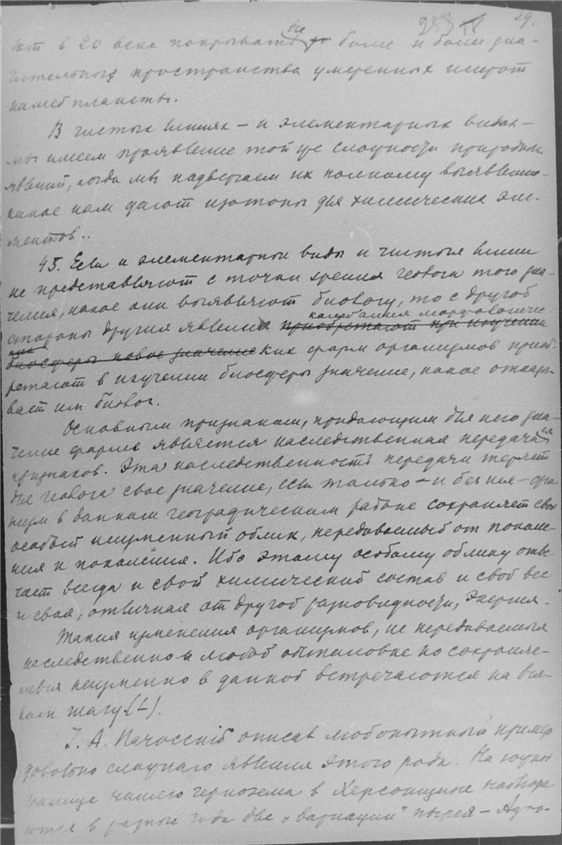 29.
ют в 20 веке покрывать все более и более зна-
чительные пространства умеренных широт
нашей планеты.
В чистых линиях – и элементарных видах –
мы имеем проявление той же сложности природных
явлений, когда мы подвергаем их полному выявлению
какое нам дают изотопы для химических эле-
ментов..
45. Если и элементарные виды и чистые линии
не представляют с точки зрения геолога того зна-
чения, какое они выявляют биологу, то с другой
стороны другие явления приобретают при изучении
биосферы новое значение ких форм организмов приоб-
ретают в изучении биосферы значение, какое отказы-
вает им биолог.
Основным признаком, придающим для него зна-
чение форме является наследственная передача ее
признаков. Эта наследственность передачи теряет
для геолога свое значение, если только – и без нее – орга-
низм в данном географическом районе сохраняет свой
особый неизменный облик, передаваемый от поколе-
ния к поколения. Ибо этому особому облику отве-
чает всегда и свой химический состав и свой вес
и своя, отличная от другой разновидности, энергия.
Такия изменения организмов, не передаваемыя
наследственно в любой обстановке но сохраняе-
мыя неизменно в данной встречаются на вся-
ком шагу (L).
I. А. Пачосский описал любопытный пример
довольно сложнаго явления этого рода. На южной
границе нашего чернозема в Херсонщине наблюда-
ются в разные года две „вариации" пырея – Agro-